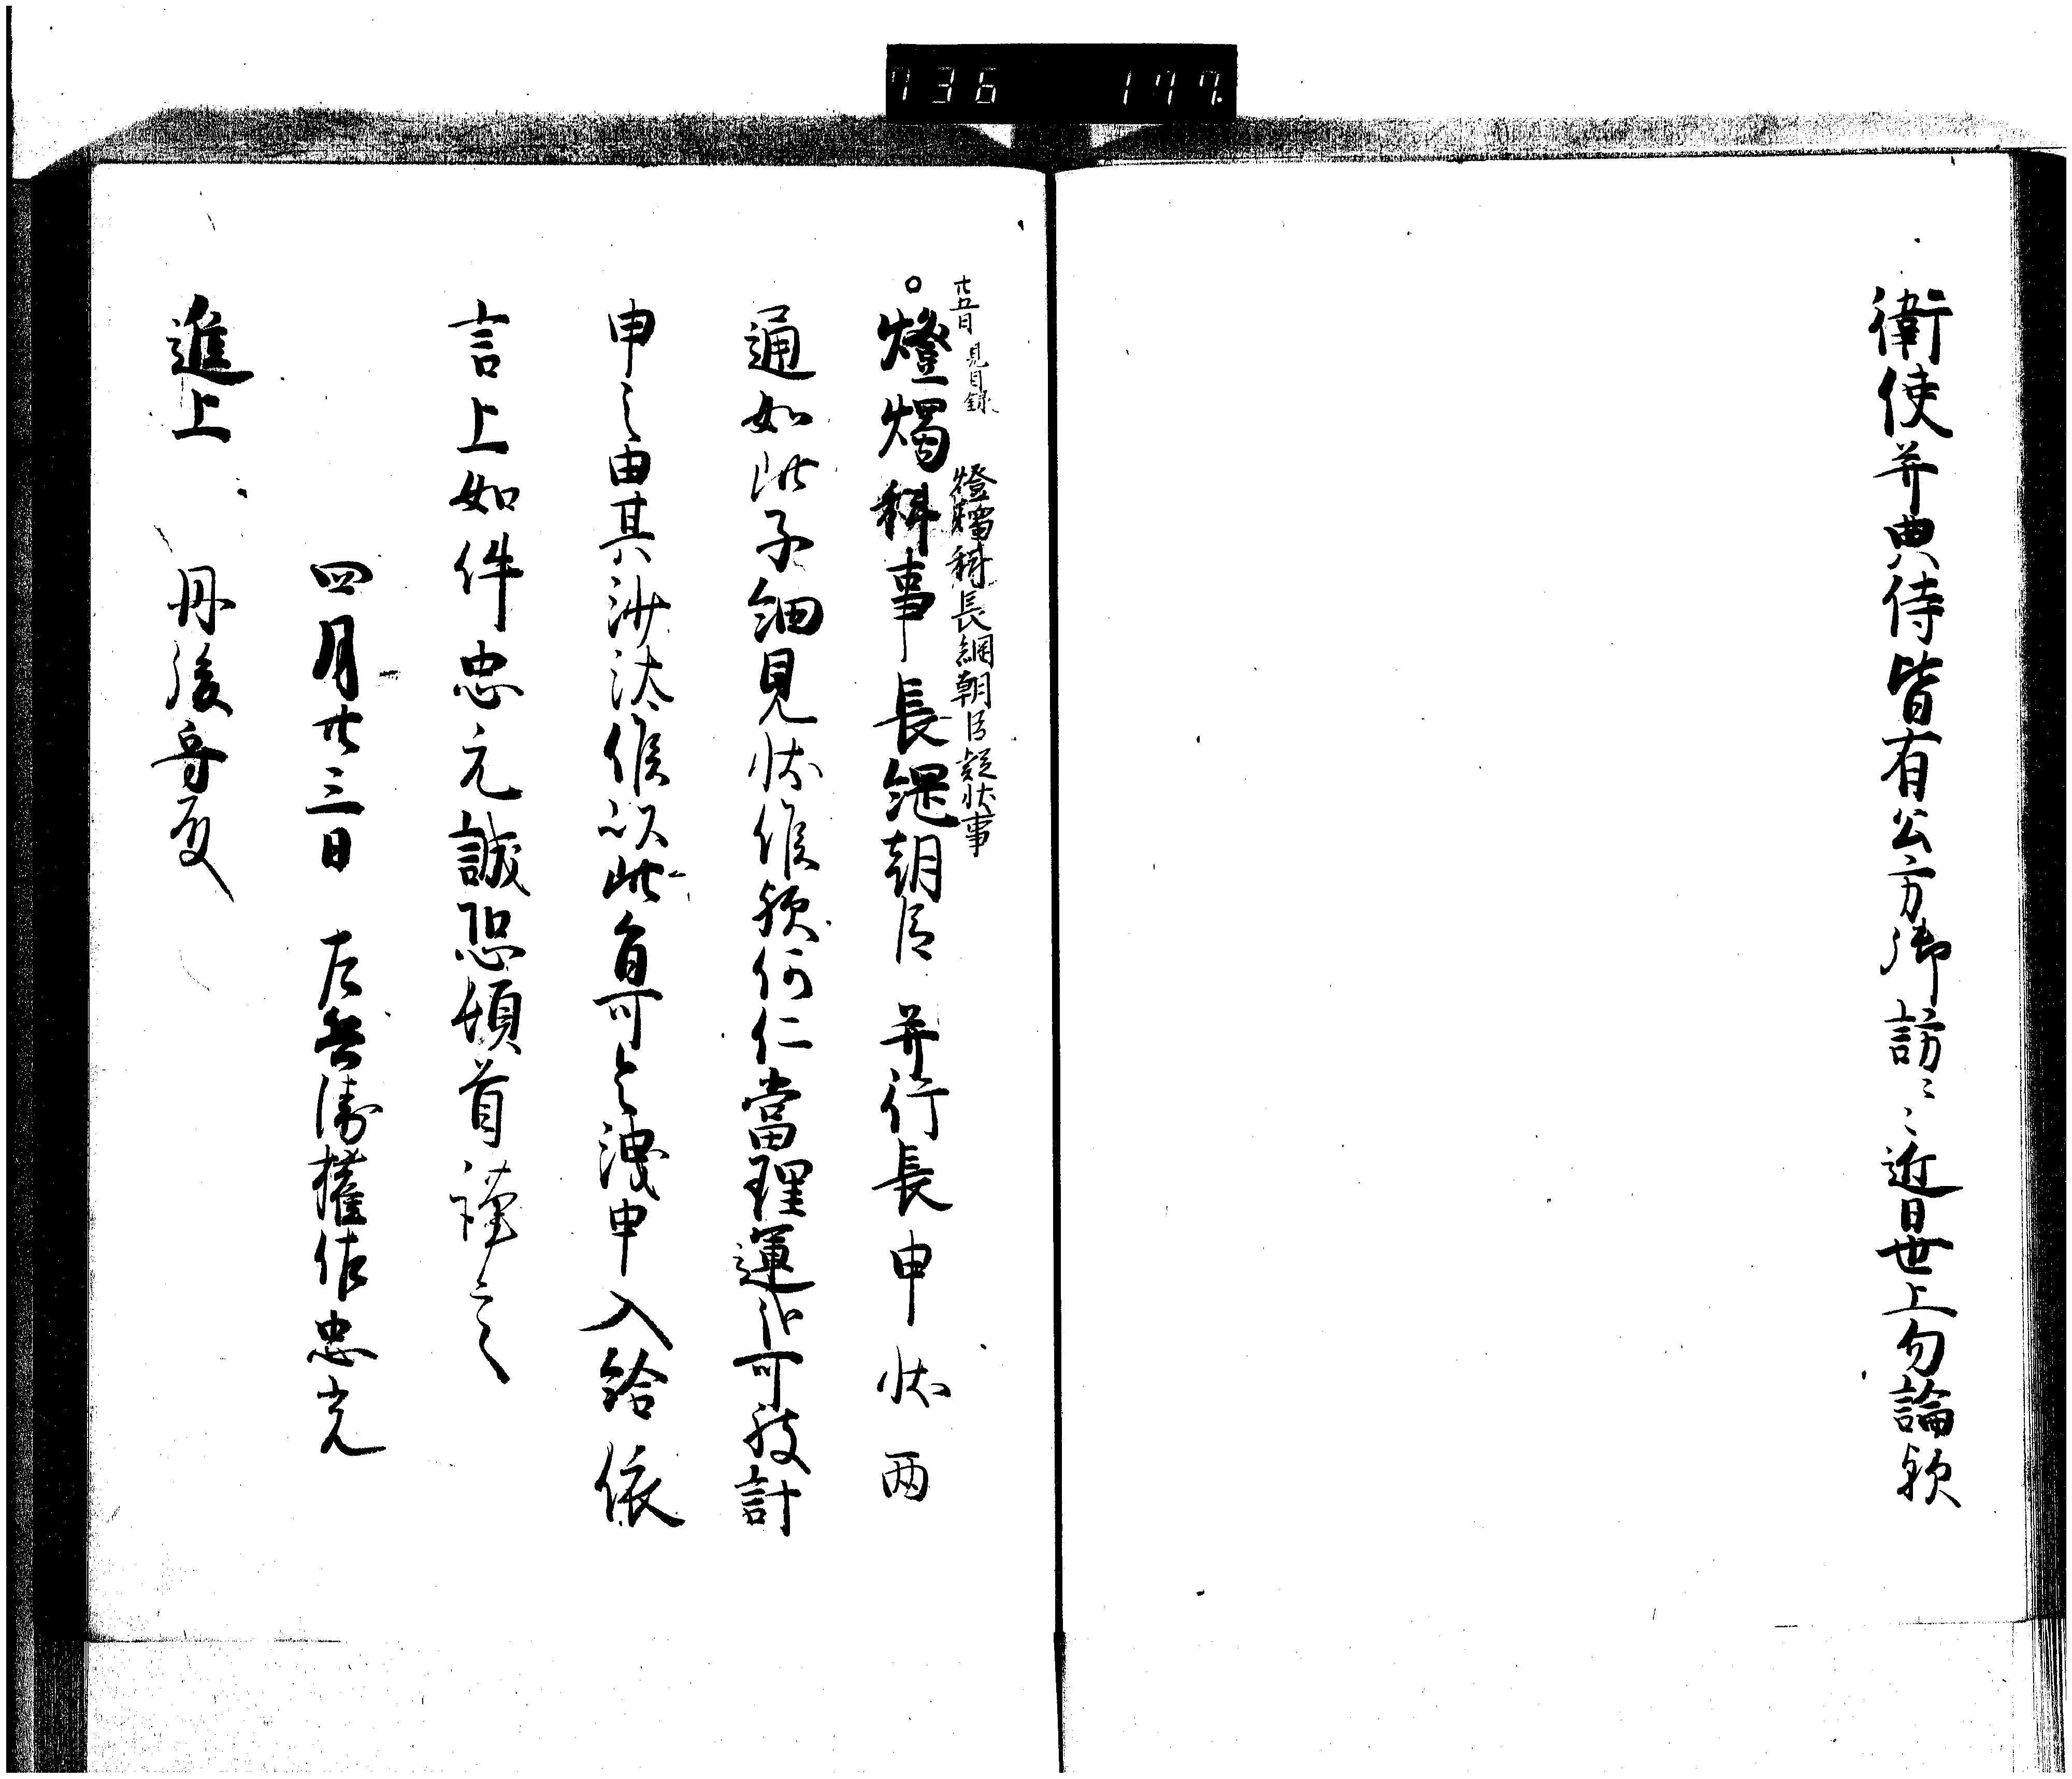 736 177.
衛使并典侍皆有公方御訪云々近日世上勿論欤
廿五日 見目録
燈燭科長綱朝臣疑状事
○燈燭科事長綱朝臣并行長申状両
通如此子細見状候欤何仁當理運哉可被計
申之由其沙汰候以此旨可令洩申入給依
言上如件忠光誠恐頓首謹言
四月廿三日 左兵衛権佐忠光
進上 丹後守殿